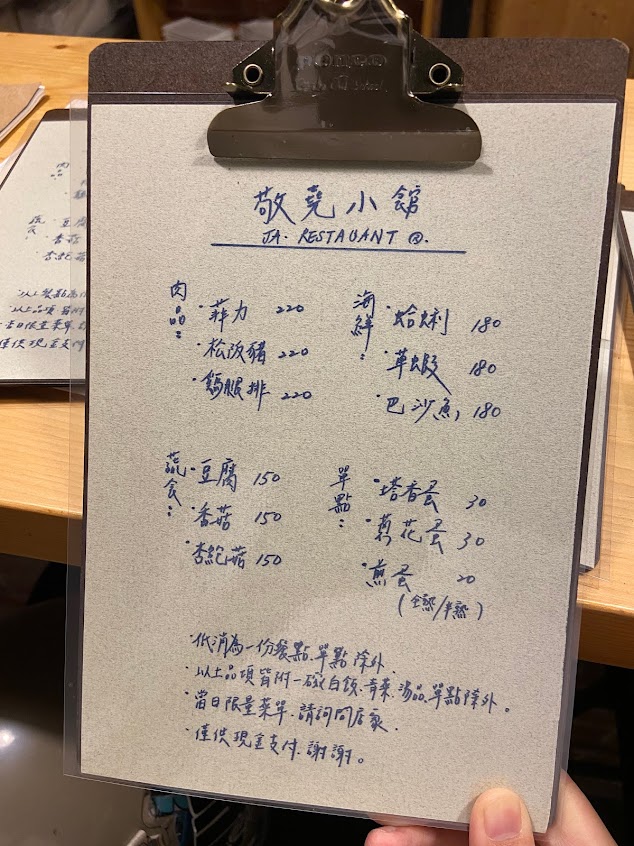 敬堯小館
JA. RESTAUANT ®.
肉品:
·菲力 220
·松阪豬 220
·鴨腿排 220
海鮮:
·蛤蜊 180
·草蝦 180
·巴沙魚 180
蔬食:
·豆腐 150
·香菇 150
·杏鮑菇 150
單點:
·塔香蛋 30
·蔥花蛋 30
·煎蛋 20
(全熟/半熟)
·低消為一份餐點.單點除外.
·以上品項皆附一碗白飯.青菜.湯品.單點除外。
·當日限量菜單.請詢問店家.
·僅供現金支付.謝謝。